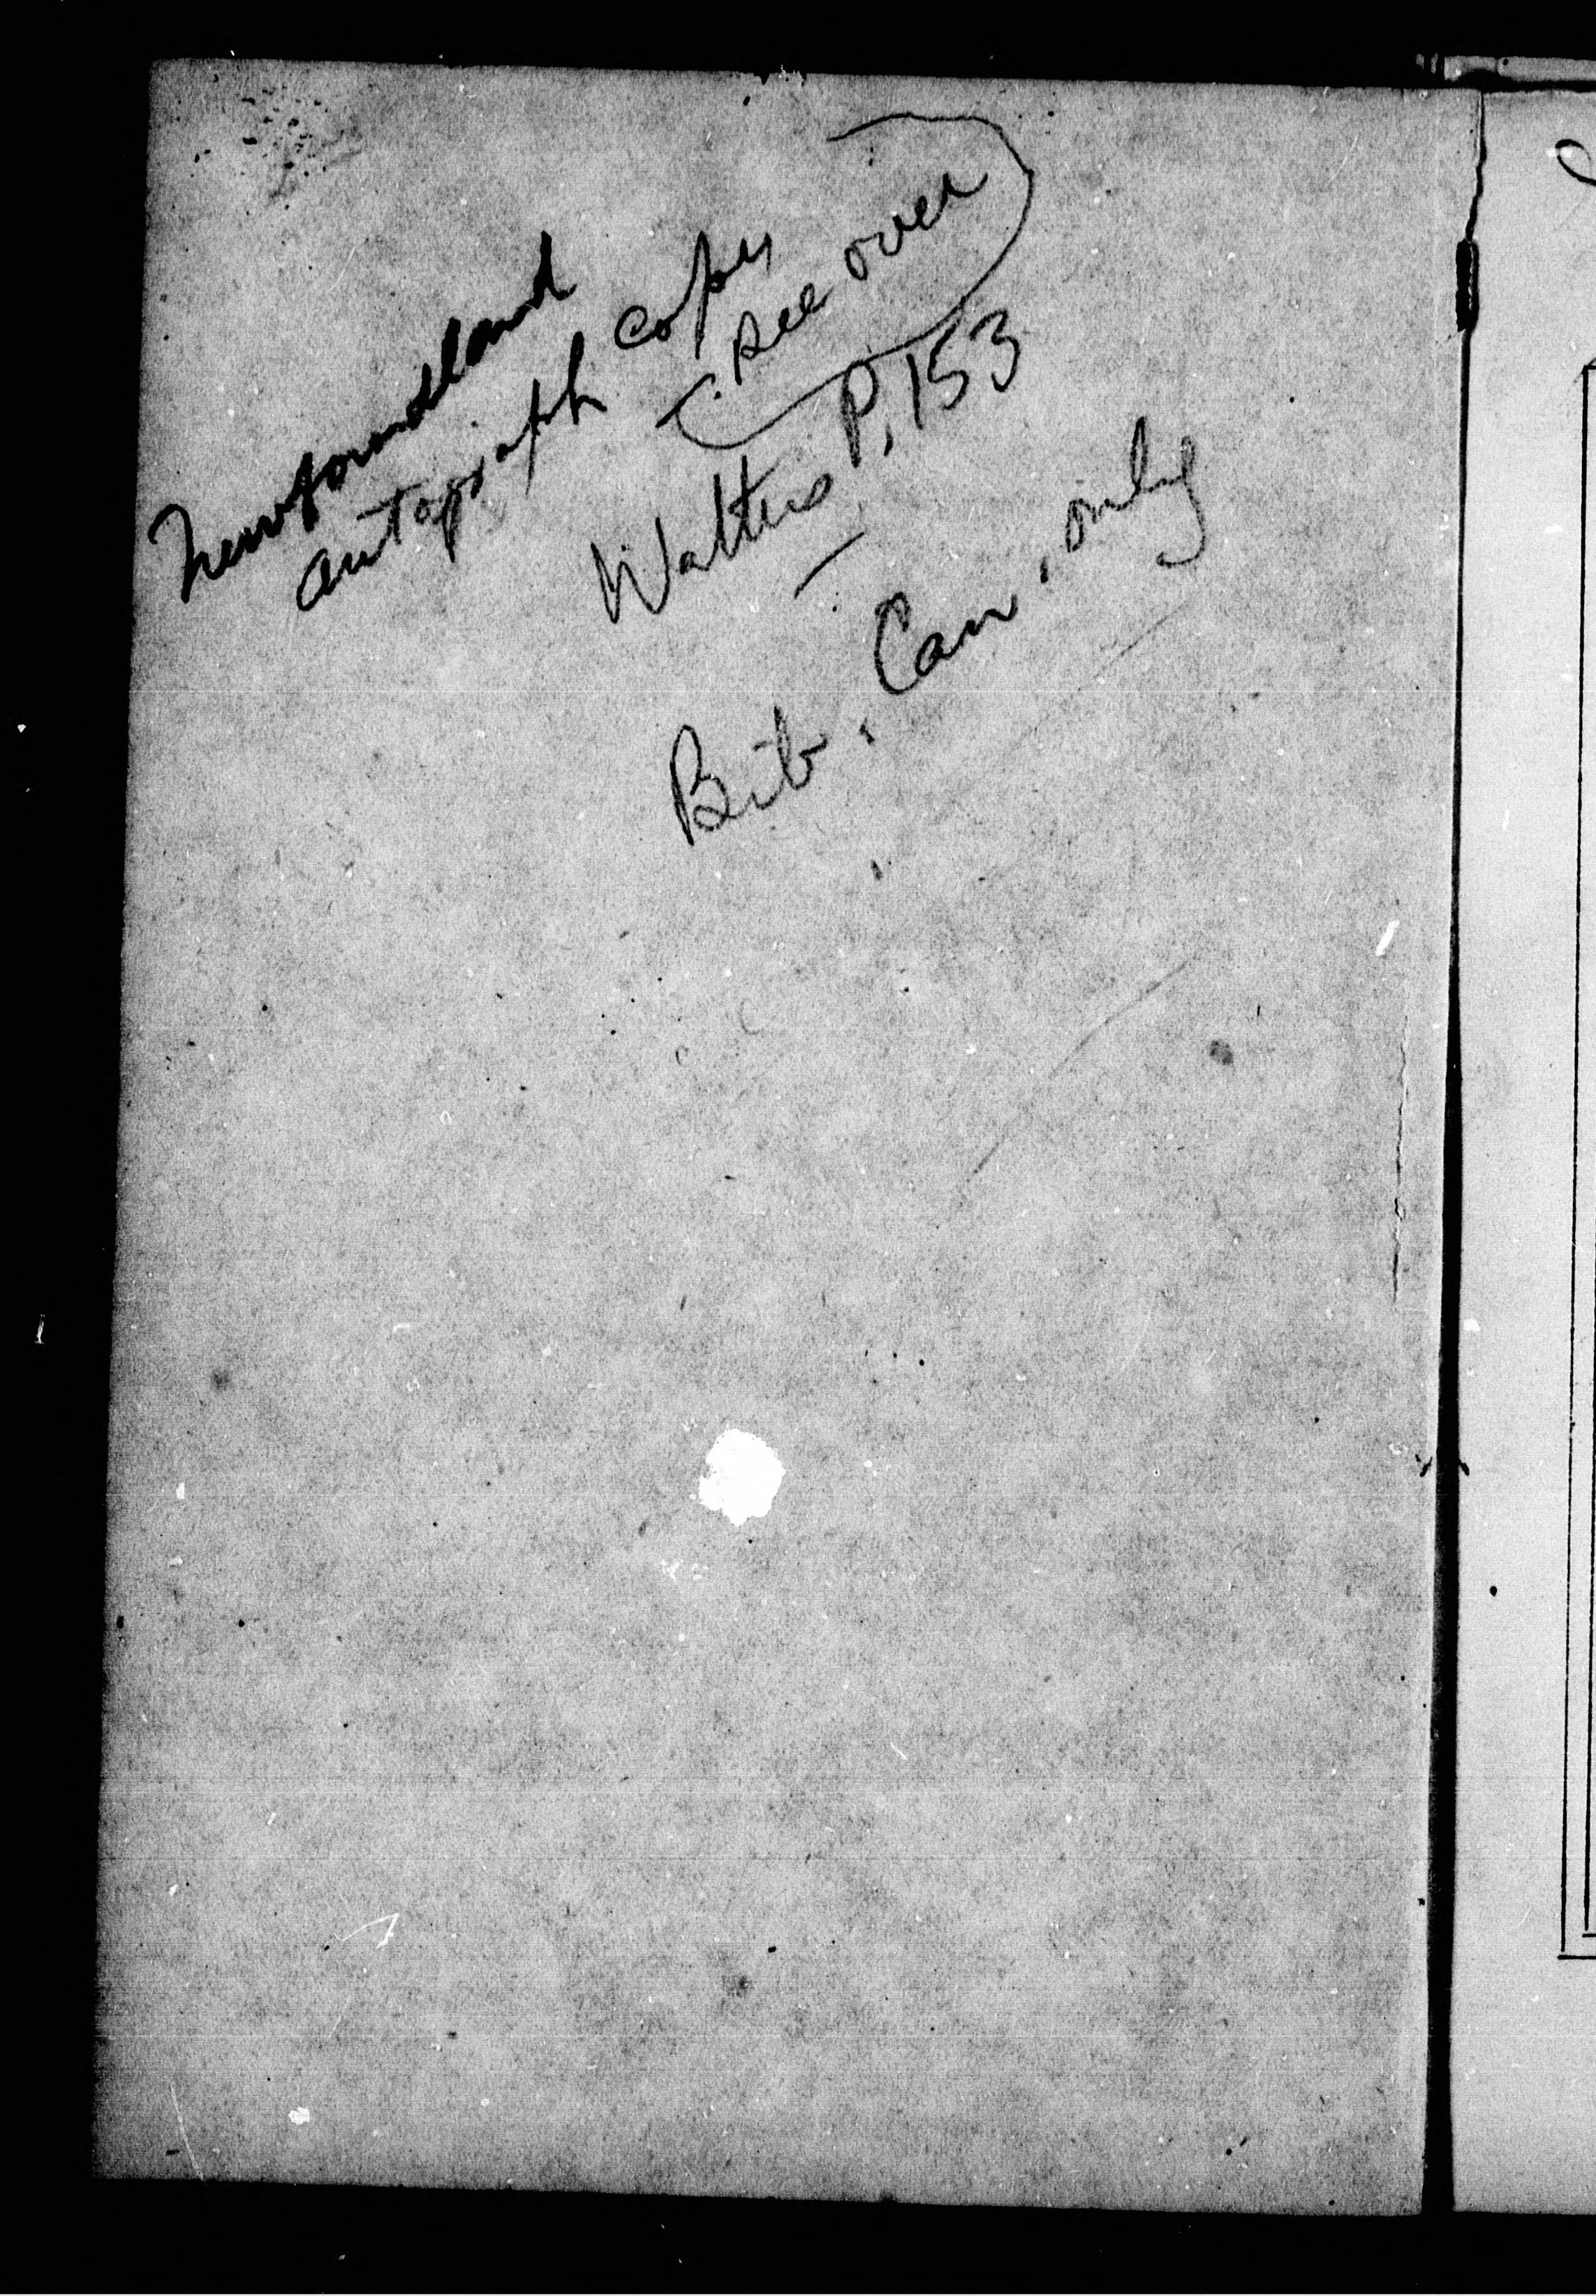 Newfoundland
autograph copy
(see over)
Watters P. 153
Bib. Can. only